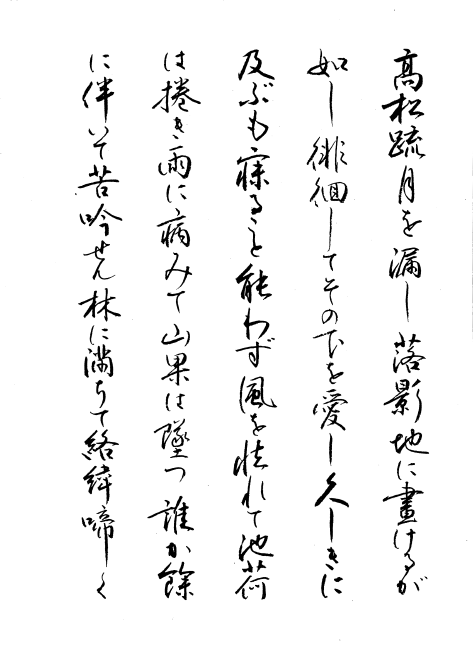 高松疏月を漏し落影地に畫けるが
如し徘徊してその下を愛し久しきに
及ぶも寐ること能わず風を怯れて池荷
は捲き雨に病みて山果は墜つ誰か餘
に伴いて苦吟せん林に満ちて絡緯啼しく